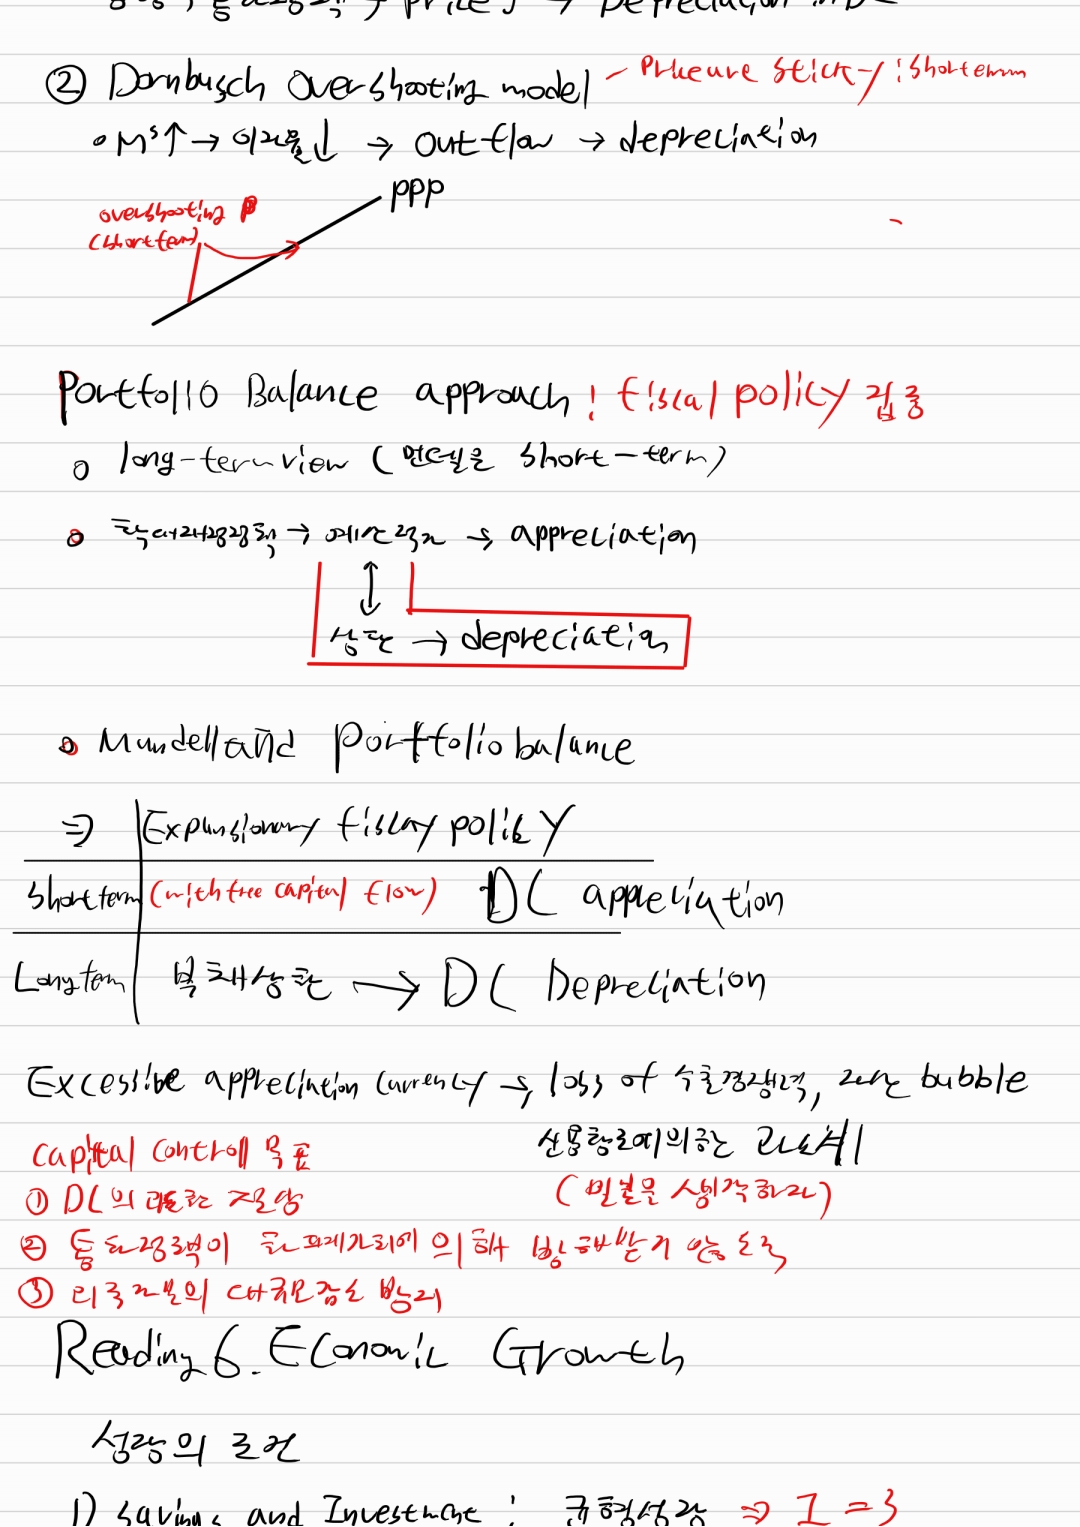 ② Dornbusch overshooting model – Price sticky : short term
∘ Mˢ↑ → 이자율↓ → outflow → depreciation
PPP
overshooting
(short term)
Portfolio Balance approach : fiscal policy 집중
∘ long-term view (먼델은 short-term)
∘ 확대재정정책 → 예산적자 → appreciation
↕
상환 → depreciation
∘ Mundell and portfolio balance
⇒ Expansionary fiscay policy
short term (with free capital flow) DC appreciation
Long term 부채상환 → DC Depreciation
Excessive appreciation currency → loss of 수출경쟁력, 자산 bubble
신용활동에 의존한 과소비
capital control 목표
① DC의 과도한 절상
② 통화정책이 환차익거래에 의해 방해받지 않도록
③ 외국자본의 대규모 감소 방지
Reading 6. Economic Growth
성장의 조건
1) Savings and Investment : 균형성장 ⇒ I = S